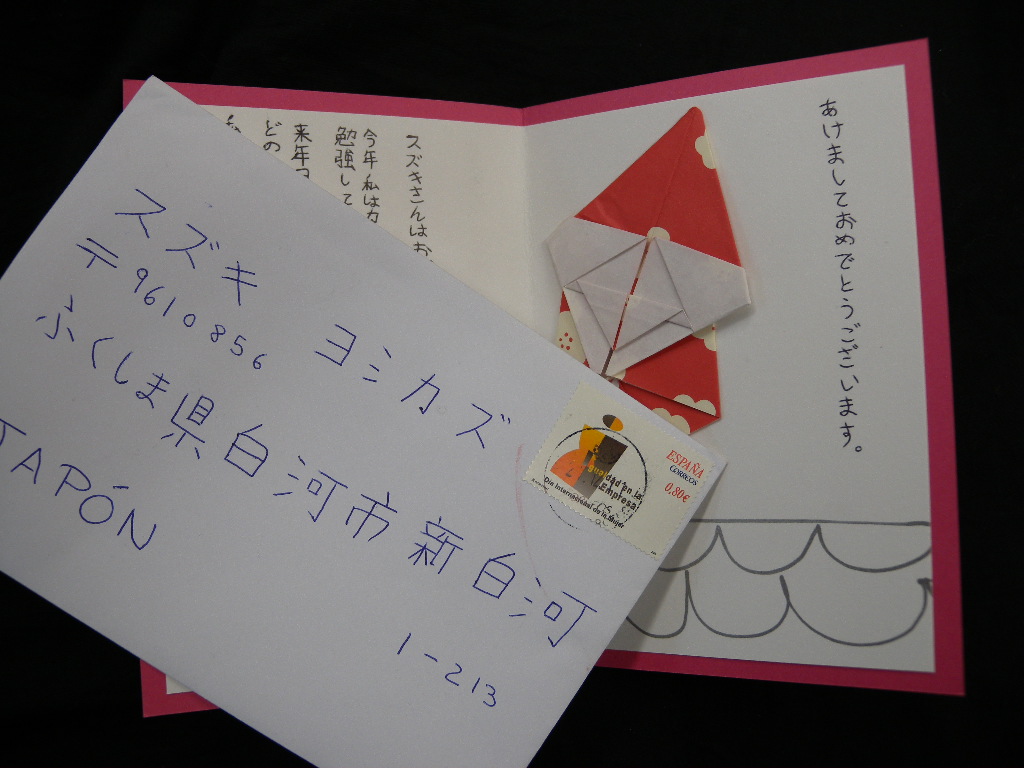 スズキ ヨシカズ
〒9610856
ふくしま県白河市新白河
1-213
JAPÓN
ESPAÑA
CORREOS
0,80€
Igualdad en la
Empresa
Día Internacional de la Mujer
あけましておめでとうございます。
スズキさんはお
今年私はカ
勉強して
来年
どの